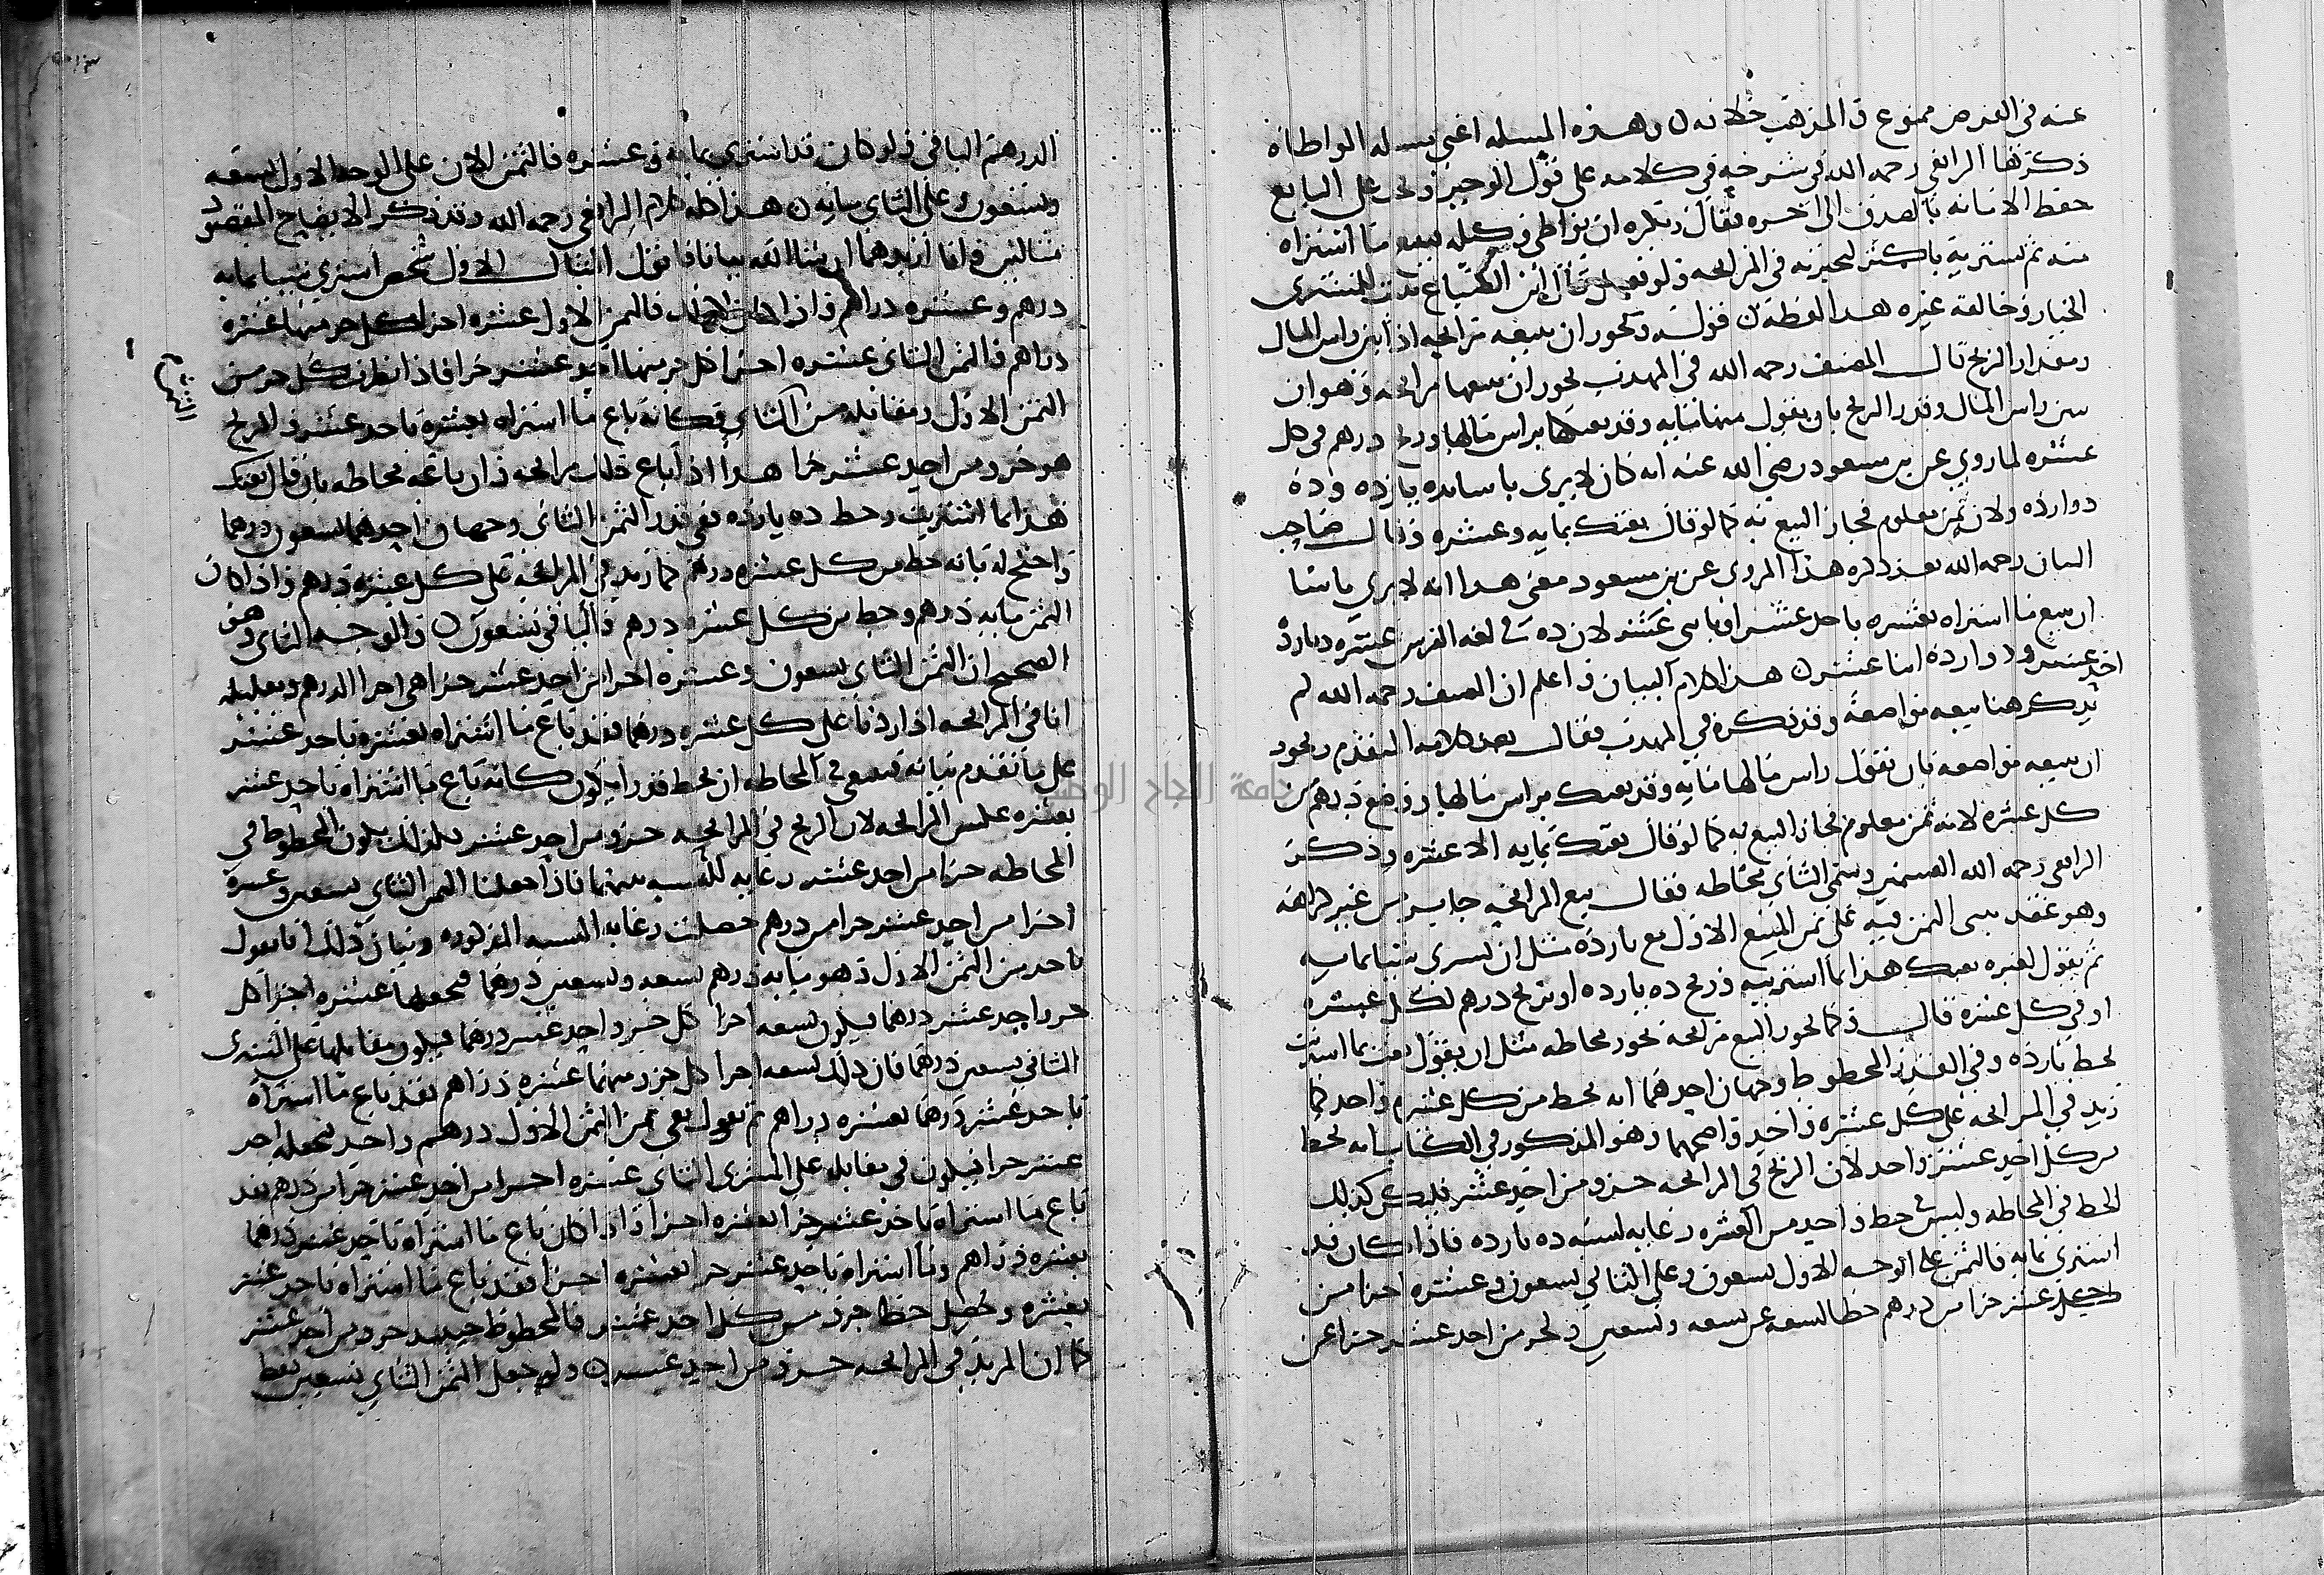 عنه في الغرض ممنوع في المذهب خلافه ن وهذه المسله اعني مسله المواطاه
ذكرها الرافعي رحمه الله في شرحه في كلامه على قول الوجيز ويجب على البايع
حفظ الامانه بالصدق الى اخره فقال ويكره ان يواطي وكيله يبيع ما اشتراه
منه ثم يشتريه باكثر ليخبر به في المرابحه ولو فعل قال ابن الصباغ ثبت للمشتري
الخيار وخالفه غيره هذا لفظه ن قوله ويجوز ان يبيعه مرابحه اذا بين راس المال
ومقدار الربح قال المصنف رحمه الله في المهذب يجوز ان يبيعها مرابحه وهو ان
يبين راس المال وقدر الربح بان يقول ثمنها مايه وقد بعتكها براس مالها وربح درهم في كل
عشره لما روي عن بن مسعود رضي الله عنه انه كان لا يرى باسا بده يازده وده
دوازده ولان ثمن معلوم فجاز البيع به كما لو قال بعتك بمايه وعشره وقال صاحب
البيان رحمه الله بعد ذكره هذا المروي عن بن مسعود معنى هذا انه لا يرى باسا
ان يبيع ما اشتراه بعشره باحد عشر او باثنى عشر لان ده في لغه الفرس عشره ويازده
احد عشر ودوازده اثنا عشر ن هذا كلام البيان واعلم ان المصنف رحمه الله لم
يذكر هنا بيعه مواضعة وقد ذكره في المهذب فقال بعد كلامه المتقدم ويجوز
ان يبيعه مواضعه بان يقول راس مالها مايه وقد بعتك براس مالها ووضع درهم من
كل عشره لانه ثمن معلوم فجاز البيع به كما لو قال بعتك بمايه الا عشره وذكر
الرافعي رحمه الله القسمين وسمى الثاني محاطه فقال بيع المرابحه جايز من غير كراهه
وهو عقد يبنى الثمن فيه على ثمن المبيع الاول مع زياده مثل ان يشتري شيا بمايه
ثم يقول لغيره بعتك هذا بما اشتريته وربح ده يازده او بربح درهم لكل عشره
او في كل عشره قال وكما يجوز البيع مرابحه يجوز محاطه مثل ان يقول بعت بما اشتريت
بحط يازده وفي القدر المحطوط وجهان احدهما انه يحط من كل عشره واحد كما
زيد في المرابحه على كل عشره واحد واصحهما وهو المذكور في الكتاب انه يحط
من كل احد عشر واحد لان الربح في المرابحه جزو من احد عشر فليكن كذلك
الحط في المحاطه وليس في حط واحد من العشره رعايه لنسبه ده يازده فاذا كان قد
اشترى بمايه فالثمن على الوجه الاول تسعون وعلى الثاني تسعون وعشره اجزا من
احد عشر جزا من درهم حطا لتسعه عن تسعه وتسعين ولجزو من احد عشر جزا عن
الدرهم الباقي ولو كان قد اشترى بمايه وعشره فالثمن الان على الوجه الاول تسعه
وتسعون وعلى الثاني مايه ن هذا لفظ كلام الرافعي رحمه الله وقد ذكر لايضاح المقصود
مثالين وانا ازيدهما ان شا الله بيانا فاقول المثال الاول شخص اشترى شيا بمايه
درهم وعشره دراهم فاذا كان كذلك فالثمن الاول عشره اجزا كل جزو منها عشره
دراهم فالثمن الثاني عشره اجزا كل جزو منها احد عشر جزا فاذا نظرت كل جزو من
الثمن الاول ومقابله من الثاني فكانه باع ما اشتراه بعشره باحد عشر والربح
هو جزو من احد عشر جزا هذا اذا باع ذلك مرابحه وان باعه محاطه بان قال بعتك
هذا بما اشتريت وحط ده يازده ففي قدر الثمن الثاني وجهان احدهما تسعون درهما
واحتج له بانه حط من كل عشره درهم كما زيد في المرابحه على كل عشره درهم فاذا كان
الثمن مايه درهم وحط من كل عشره درهم فالباقي تسعون ن والوجه الثاني وهو
الصحيح ان الثمن الثاني تسعون وعشره اجزا من احد عشر جزا هي اجزا الدرهم وتعليله
انا في المرابحه اذا زدنا على كل عشره درهما فقد باع ما اشتراه بعشره باحد عشر
على ما تقدم بيانه فينبغي في المحاطه ان يحط قدرا يكون كانه باع ما اشتراه باحد عشر
بعشره عكس المرابحه لان الربح في المرابحه جزو من احد عشر فكذلك يكون المحطوط في
المحاطه جزا من احد عشر رعايه للنسبه بينهما فاذا جعلنا الثمن الثاني تسعين وعشره
اجزا من احد عشر جزا من درهم حصلت رعايه النسبه المذكوره وبيان ذلك انا نقول
ناخذ من الثمن الاول وهو مايه درهم تسعه وتسعين درهما فنجعلها تسعه اجزا كل
جزو احد عشر درهما فيكون تسعه اجزا كل جزو احد عشر درهما فيكون مقابلها على المشتري
الثاني تسعين درهما فان ذلك تسعه اجزا كل جزو منها عشره دراهم فقد باع ما اشتراه
باحد عشر درهما بعشره دراهم ثم نقول بقي من الثمن الاول درهم واحد نجعله احد
عشر جزا فيكون في مقابله على المشتري الثاني عشره اجزا من احد عشر جزا من درهم فقد
باع ما اشتراه باحد عشر جزا بعشره اجزا واذا كان باع ما اشتراه باحد عشر درهما
بعشره دراهم وما اشتراه باحد عشر جزا بعشره اجزا فقد باع ما اشتراه باحد عشر
بعشره وحصل حط جزو من كل احد عشر فالمحطوط حينيذ جزو من احد عشر
كما ان المزيد في المرابحه جزو من احد عشر ن ولو جعل الثمن الثاني تسعين فقط
جامعة النجاح الوطنية